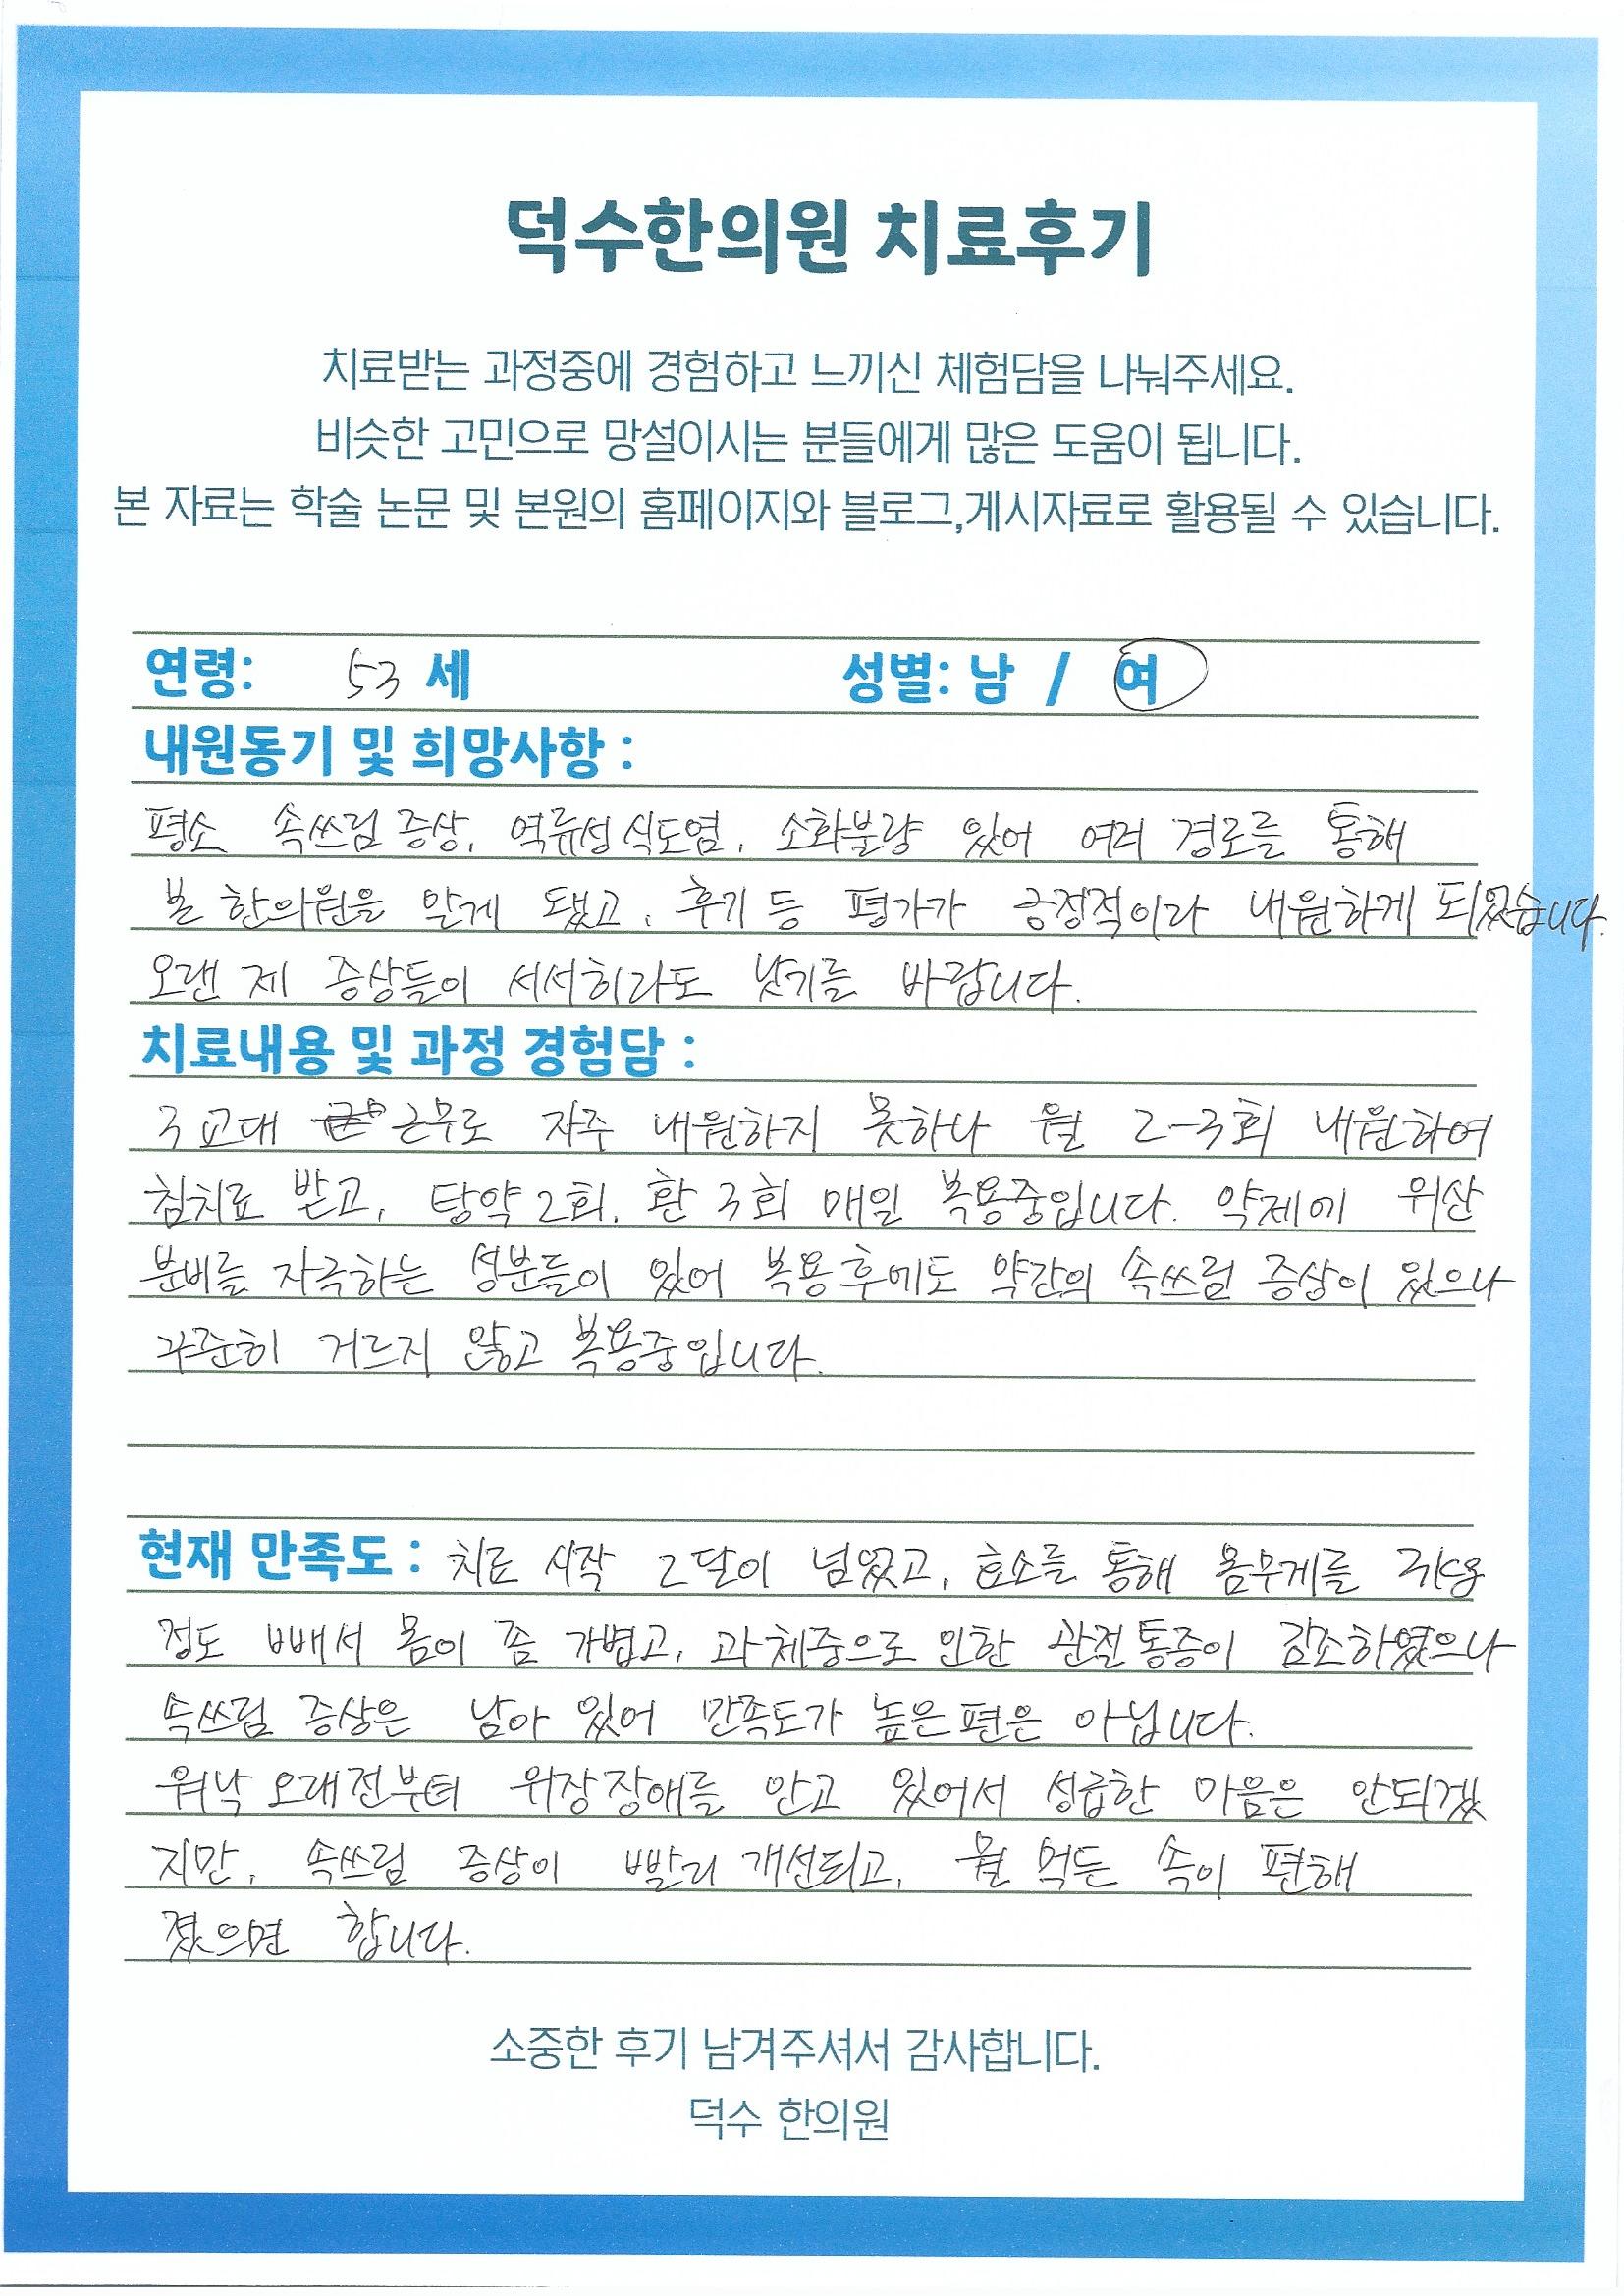 덕수한의원 치료후기
치료받는 과정중에 경험하고 느끼신 체험담을 나눠주세요.
비슷한 고민으로 망설이시는 분들에게 많은 도움이 됩니다.
본 자료는 학술 논문 및 본원의 홈페이지와 블로그,게시자료로 활용될 수 있습니다.
연령: 53 세 성별: 남 / 여
내원동기 및 희망사항 :
평소 속쓰림 증상, 역류성 식도염, 소화불량 있어 여러 경로를 통해
본 한의원을 알게 됐고, 후기 등 평가가 긍정적이라 내원하게 되었습니다.
오랜 제 증상들이 서서히라도 낫기를 바랍니다.
치료내용 및 과정 경험담 :
3교대 근무로 자주 내원하지 못하나 월 2-3회 내원하여
침치료 받고, 탕약 2회, 환 3회 매일 복용중입니다. 약제에 위산
분비를 자극하는 성분들이 있어 복용후에도 약간의 속쓰림 증상이 있으나
꾸준히 거르지 않고 복용중입니다.
현재 만족도 : 치료 시작 2달이 넘었고, 효소를 통해 몸무게를 7kg
정도 빼서 몸이 좀 가볍고, 과체중으로 인한 관절통증이 감소하였으나
속쓰림 증상은 남아 있어 만족도가 높은 편은 아닙니다.
워낙 오래전부터 위장장애를 안고 있어서 성급한 마음은 안되겠
지만, 속쓰림 증상이 빨리 개선되고, 뭘 먹든 속이 편해
졌으면 합니다.
소중한 후기 남겨주셔서 감사합니다.
덕수 한의원